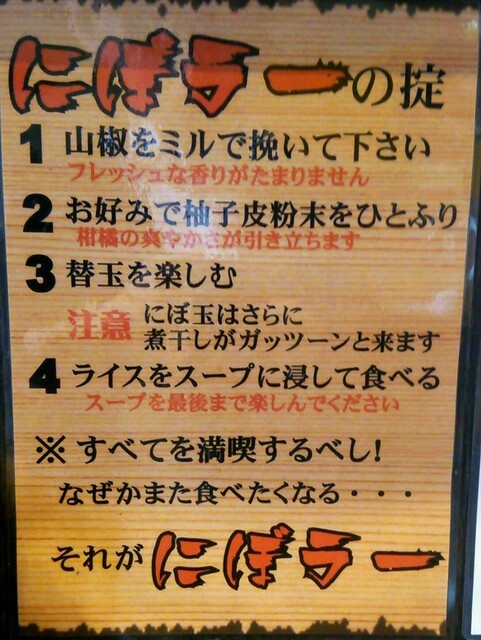 にぼラーの掟
1 山椒をミルで挽いて下さい
フレッシュな香りがたまりません
2 お好みで柚子皮粉末をひとふり
柑橘の爽やかさが引き立ちます
3 替玉を楽しむ
注意 にぼ玉はさらに
煮干しがガッツーンと来ます
4 ライスをスープに浸して食べる
スープを最後まで楽しんでください
※ すべてを満喫するべし!
なぜかまた食べたくなる・・・
それが にぼラー